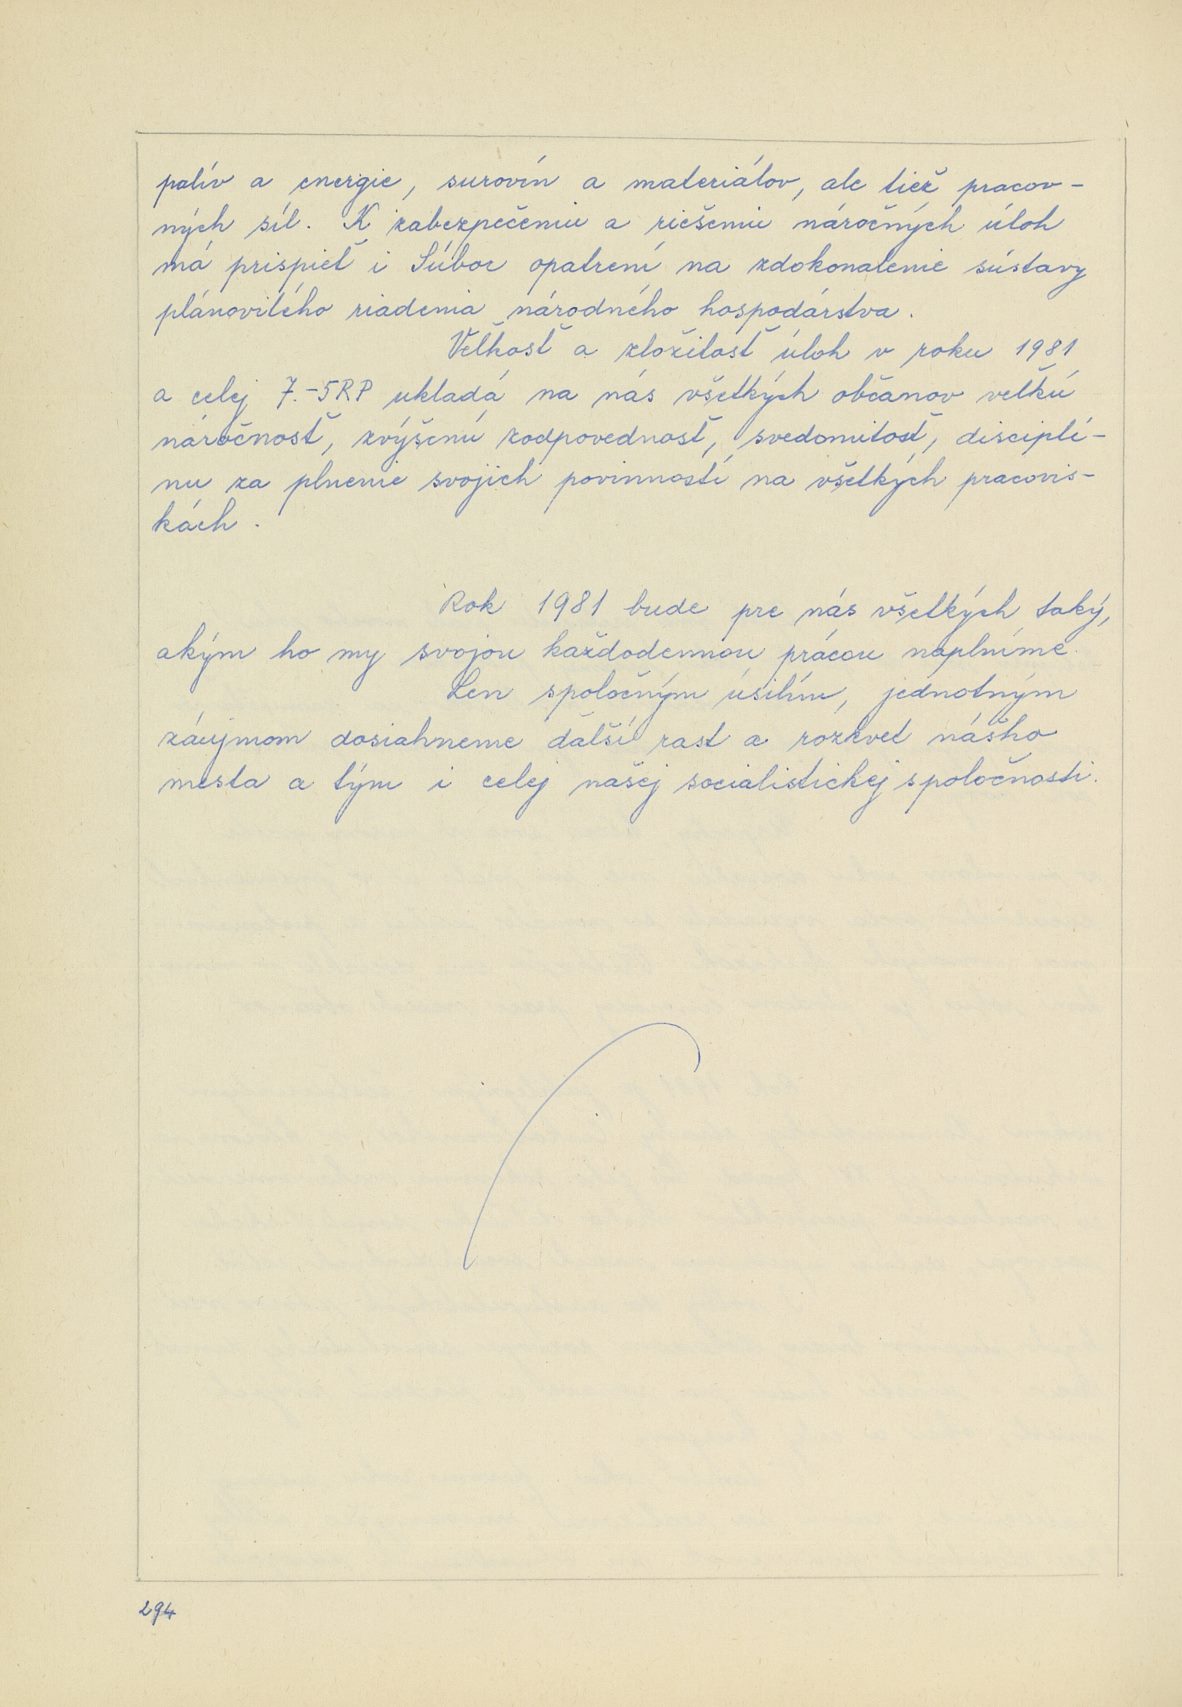 palív a energie, surovín a materiálov, ale tiež pracov-
ných síl. K zabezpečeniu a riešeniu náročných úloh
má prispieť i Súbor opatrení na zdokonalenie sústavy
plánovitého riadenia národného hospodárstva.
Veľkosť a zložitosť úloh v roku 1981
a celej 7.-5RP ukladá na nás všetkých občanov veľkú
náročnosť, zvýšenú zodpovednosť, svedomitosť, disciplí-
nu za plnenie svojich povinností na všetkých pracovis-
kách.
Rok 1981 bude pre nás všetkých taký,
akým ho my svojou každodennou prácou naplníme.
Len spoločným úsilím, jednotným
záujmom dosiahneme ďalší rast a rozkvet nášho
mesta a tým i celej našej socialistickej spoločnosti.
294